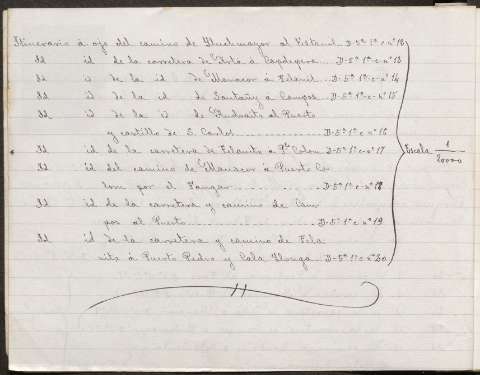 Itinerario á ojo del camino de Lluchmayor al Estañol D-5ª 1º c-nº 1
Id id de la carretera de Artá a Capdepera D-5ª 1º c-nº 13
Id id de la id de Manacor á Felanit D-5ª 1º c-nº 14
Id id de la id de Santañy a Campos D-5ª 1º c-nº 15
Id id de la id de al Puerto
y castillo de S. Carlos D-5ª 1º c-nº 16
Id id de la carretera de Felanitx a Pto Colom D-5ª 1º c-nº 17
Id id del camino de Manacor á Puerto Co
lom por el Fangar D-5ª 1º c-nº 18
Id id de la carretera y camino de Cam
pos al Puerto D-5ª 1º c-nº 19
Id id de la carretera y camino de Fela
nitx á Puerto Pedro y Cala Llonga D-5ª 1º c-nº 20
Escala 1
20000